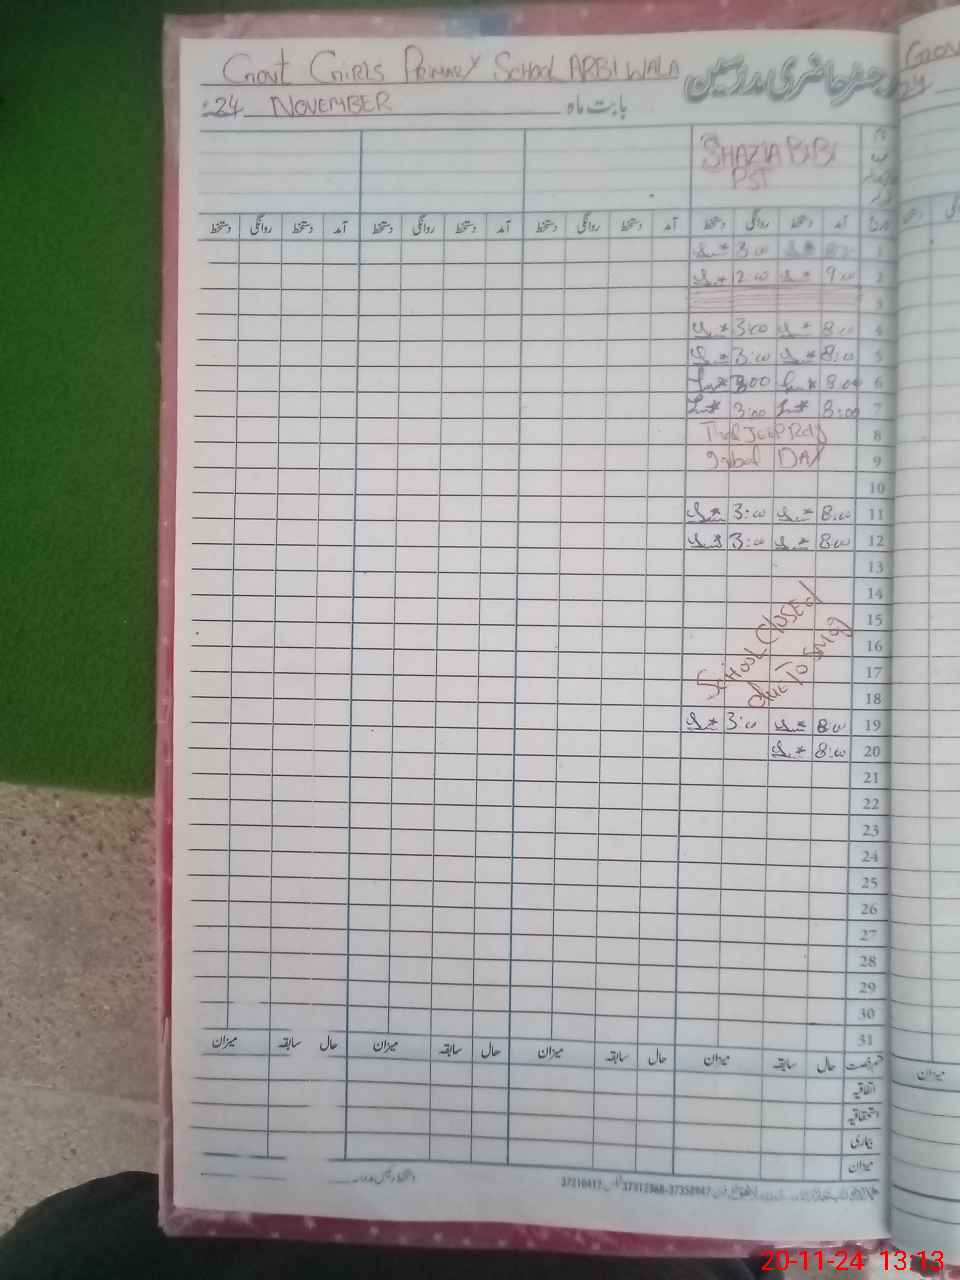 Govt GIRLS PRIMARY School ARBI WALA
رجسٹر حاضری مدرسین
بابت ماہ NOVEMBER 24
SHAZIA BIBI
PST
تاریخ آمد دستخط روانگی دستخط آمد دستخط روانگی دستخط آمد دستخط روانگی دستخط آمد دستخط روانگی دستخط
1 3:00
2 9:00 2:00
3
4 8:00 3:00
5 8:00 3:00
6 8:00 3:00
7 8:00 3:00
8 Thal Jeep Rally
9 Iqbal DAY
10
11 8:00 3:00
12 8:00 3:00
13
14
15
16
17
18
School Closed
due To SMOG
19 8:00 3:00
20 8:00
21
22
23
24
25
26
27
28
29
30
31
قسم رخصت حال سابقہ میزان حال سابقہ میزان حال سابقہ میزان حال سابقہ میزان
اتفاقیہ
استحقاقیہ
بیماری
میزان
میزان
20-11-24 13:13